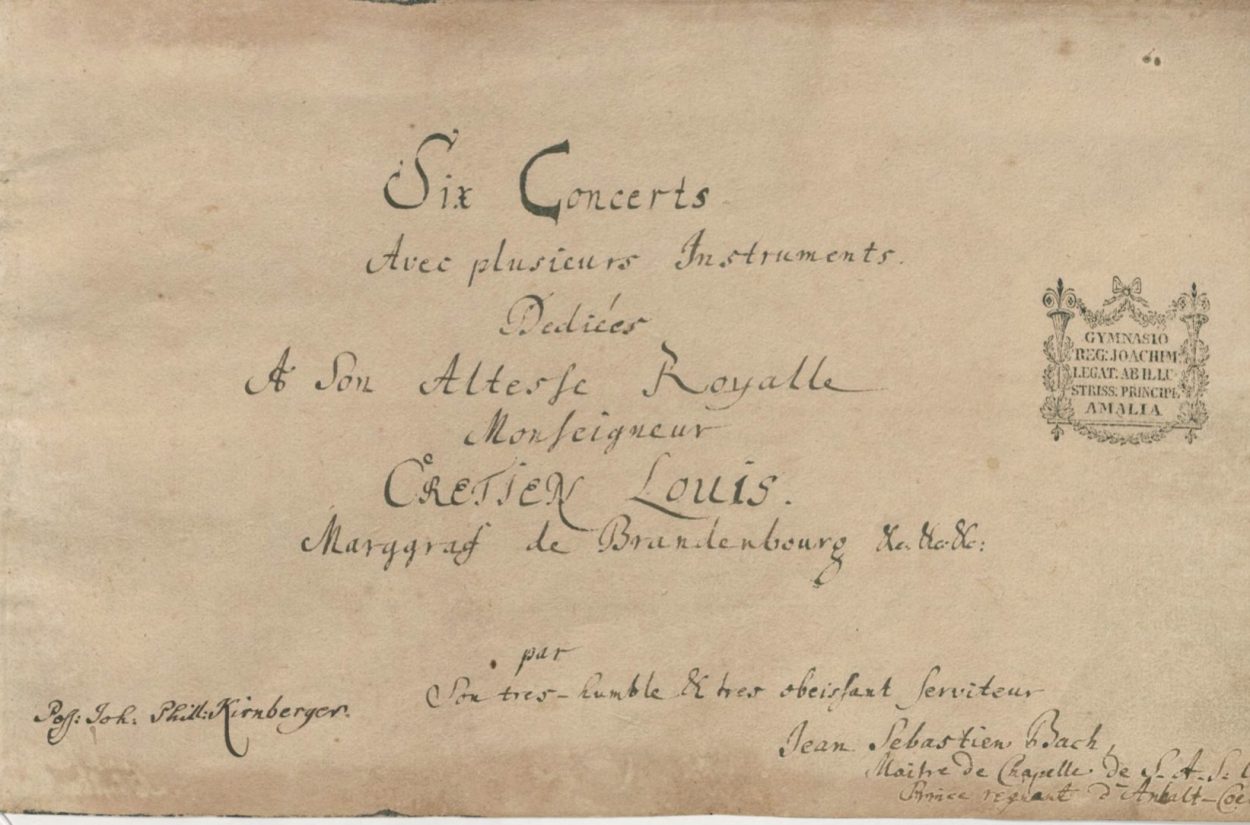 Six Concerts
Avec plusieurs Instruments.
Dediées
A Son Altesse Royalle
Monseigneur
CRETIEN LOUIS.
Marggraf de Brandenbourg &c. &c. &c:
par
Son tres-humble & tres obeissant serviteur
Jean Sebastien Bach,
Maitre de Chapelle de S. A. S. l
Prince regnant d'Anhalt-Coe
Poss: Joh: Phill: Kirnberger.
GYMNASIO
REG: JOACHIM:
LEGAT. AB ILLU
STRISS. PRINCIPE
AMALIA